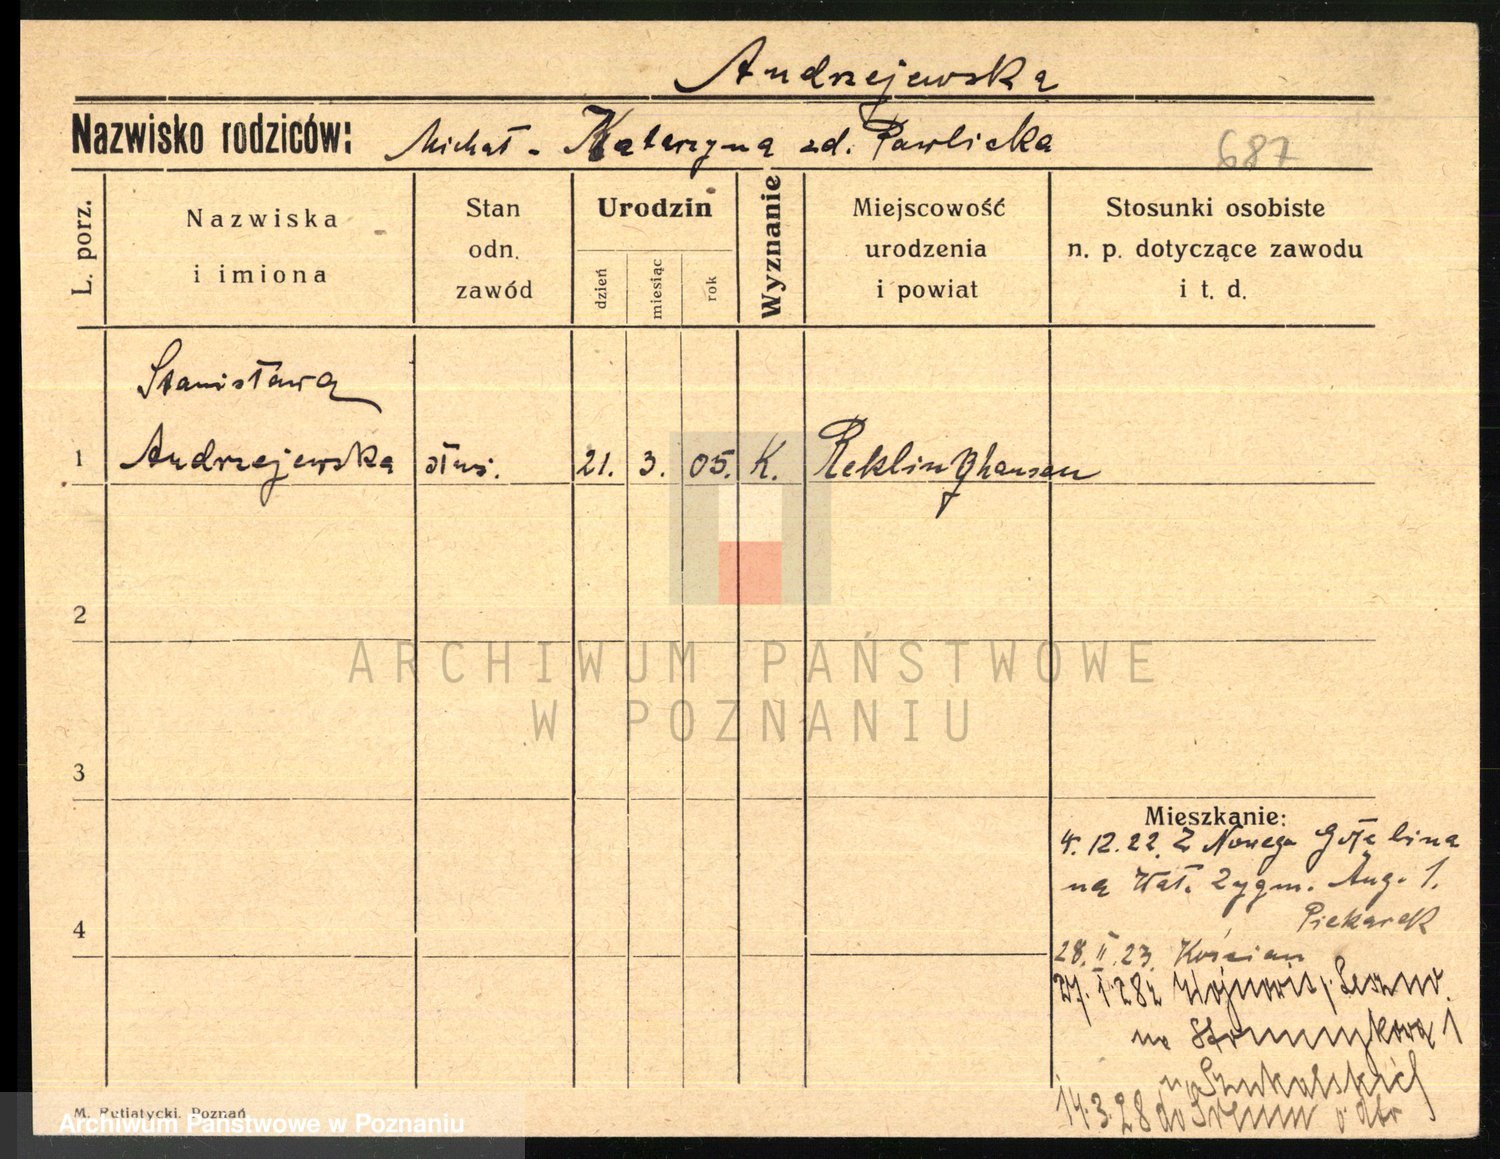 Andrzejewska
Nazwisko rodziców: Michał - Katarzyna zd. Pawlicka 687
L. porz.
Nazwiska
i imiona
Stan
odn.
zawód
Urodzin
dzień
miesiąc
rok
Wyznanie
Miejscowość
urodzenia
i powiat
Stosunki osobiste
n. p. dotyczące zawodu
i t. d.
Stanisława
1 Andrzejewska służ. 21. 3. 05. K. Reklinghausen
2
ARCHIWUM PAŃSTWOWE
W POZNANIU
3
Mieszkanie:
4. 12. 22. Z Nowego Gołębina
na Wał. Zygm. Aug. 1.
Piekarek
4
28. II. 23. Kościan
27. I. 28 Leszno
na 1
u Szukalskich
14.3.28 do Śremu
M. Pętlatycki, Poznań
Archiwum Państwowe w Poznaniu